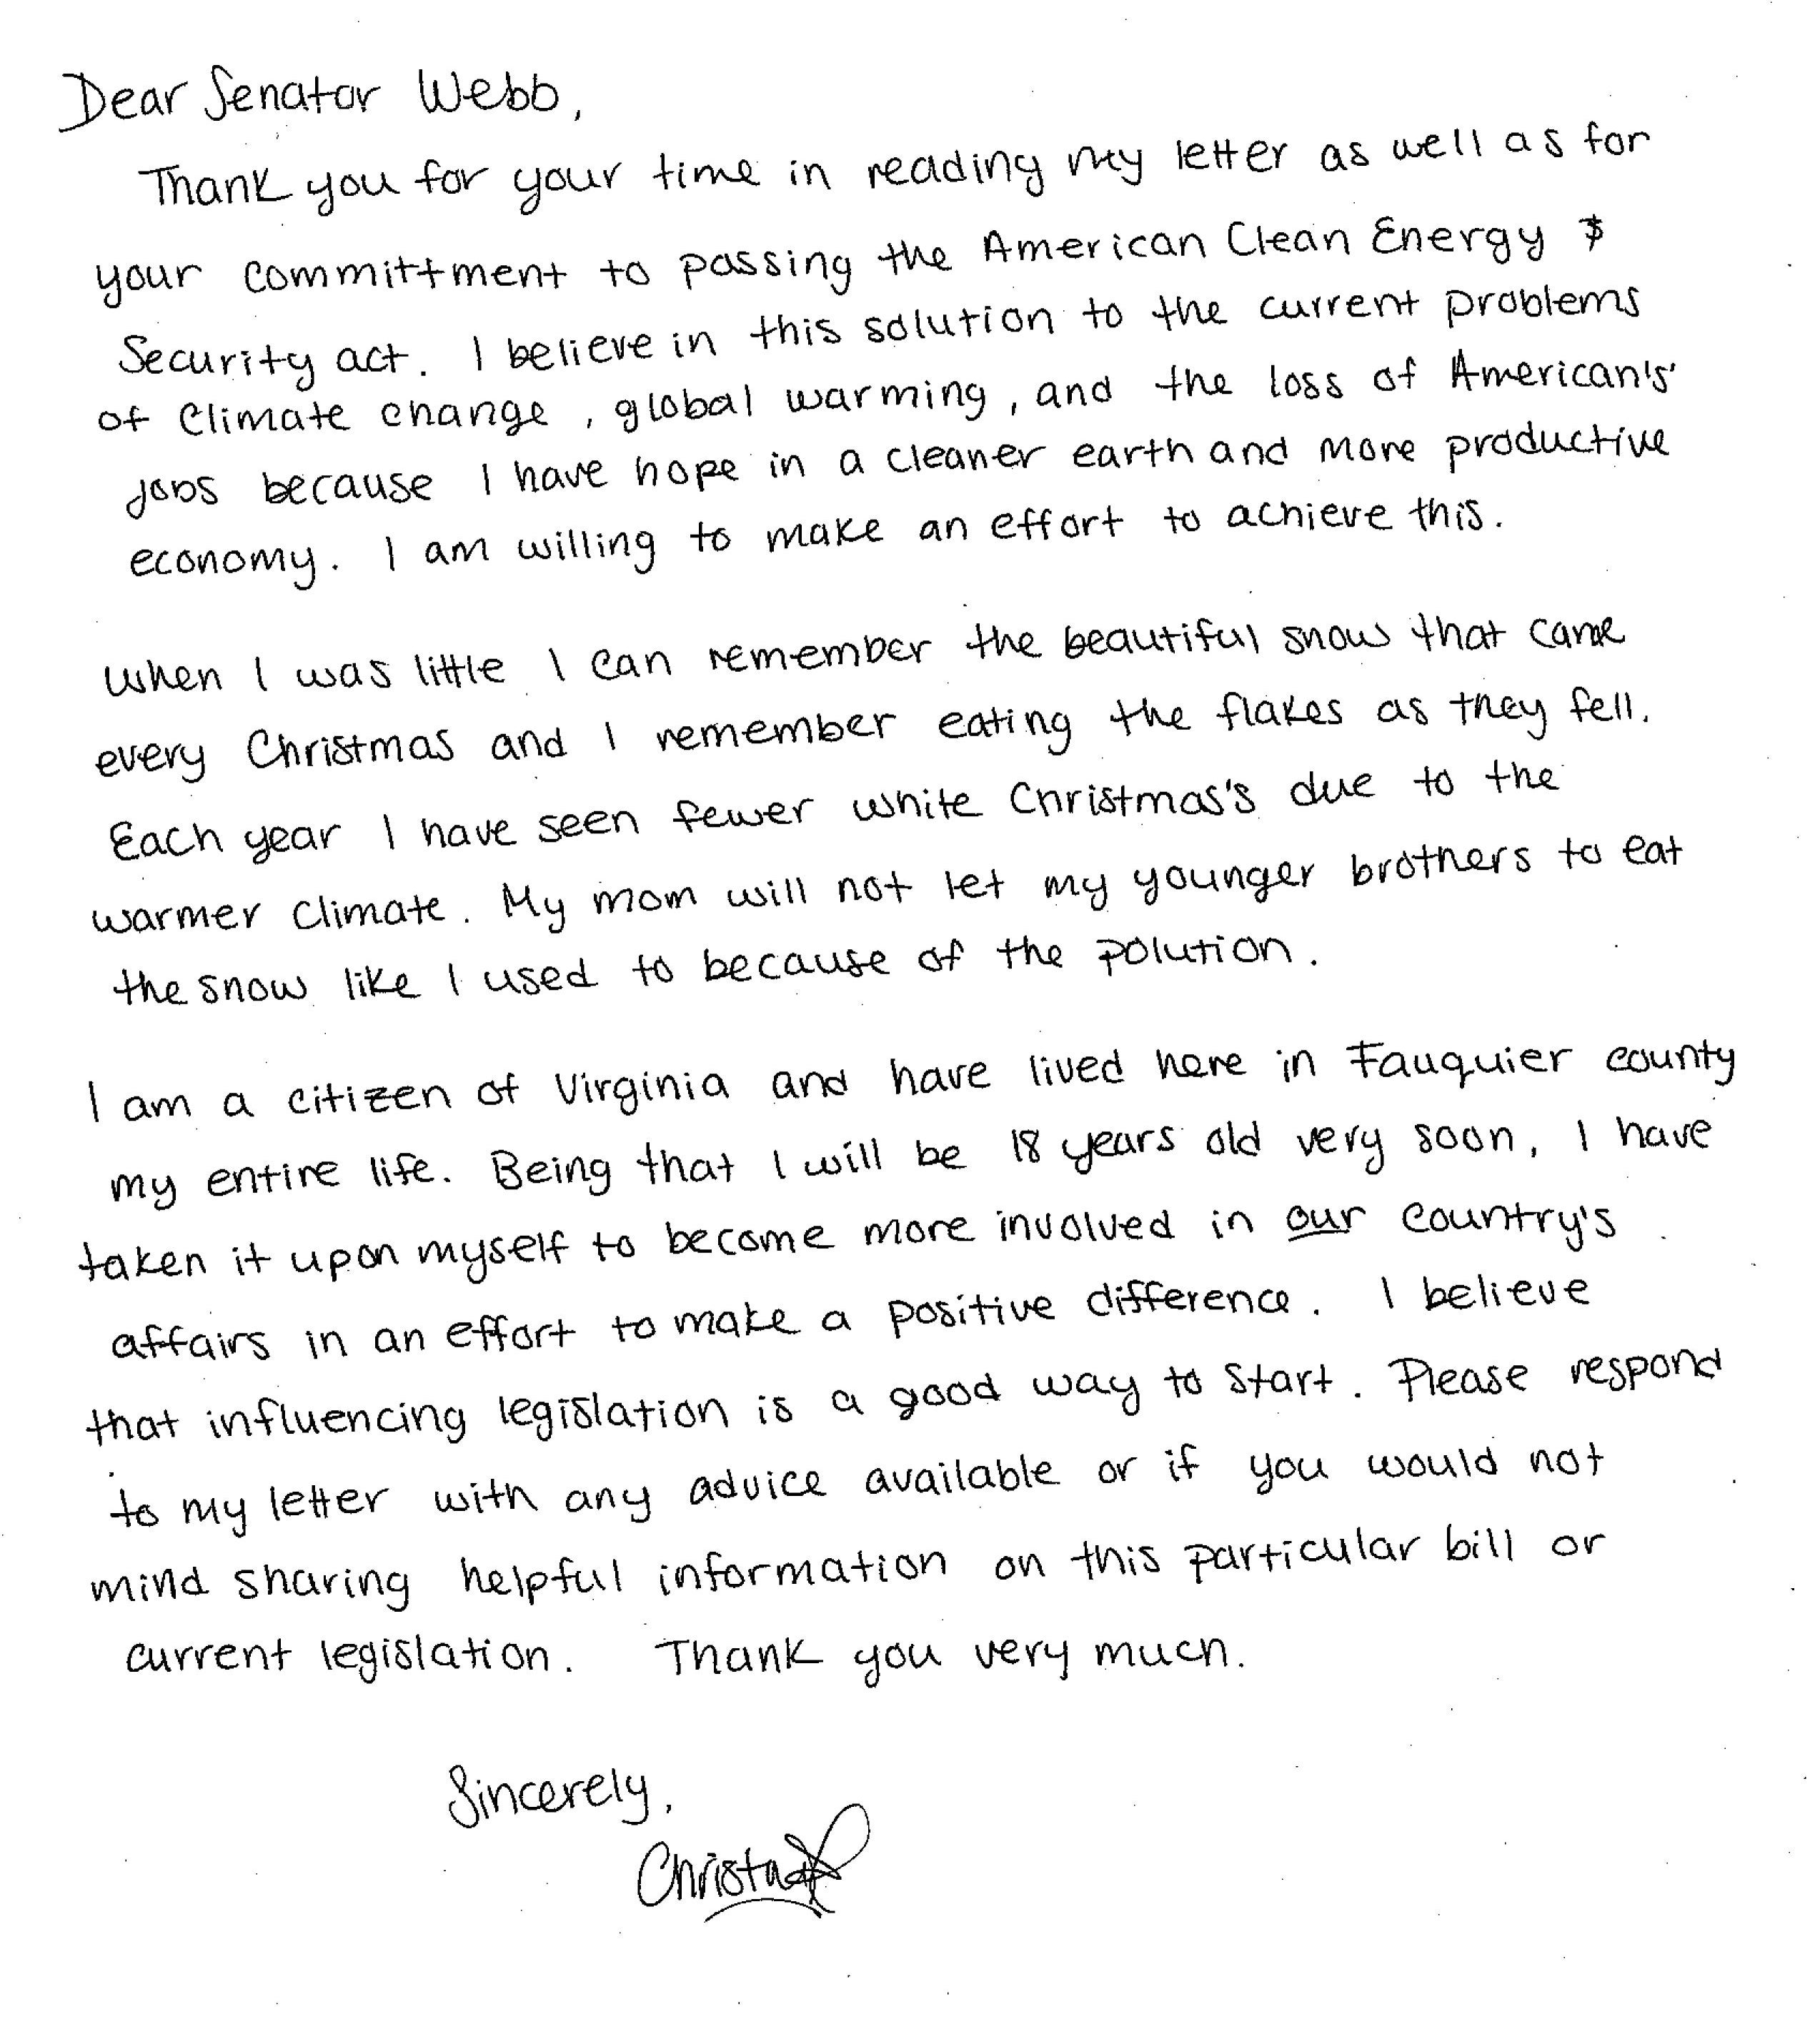 Dear Senator Webb,
Thank you for your time in reading my letter as well as for
your committment to passing the American Clean Energy &
Security act. I believe in this solution to the current problems
of climate change, global warming, and the loss of American's'
jobs because I have hope in a cleaner earth and more productive
economy. I am willing to make an effort to achieve this.
When I was little I can remember the beautiful snow that came
every Christmas and I remember eating the flakes as they fell.
Each year I have seen fewer white Christmas's due to the
warmer climate. My mom will not let my younger brothers to eat
the snow like I used to because of the polution.
I am a citizen of Virginia and have lived here in Fauquier county
my entire life. Being that I will be 18 years old very soon, I have
taken it upon myself to become more involved in our country's
affairs in an effort to make a positive difference. I believe
that influencing legislation is a good way to start. Please respond
to my letter with any advice available or if you would not
mind sharing helpful information on this particular bill or
current legislation. Thank you very much.
Sincerely,
Christa